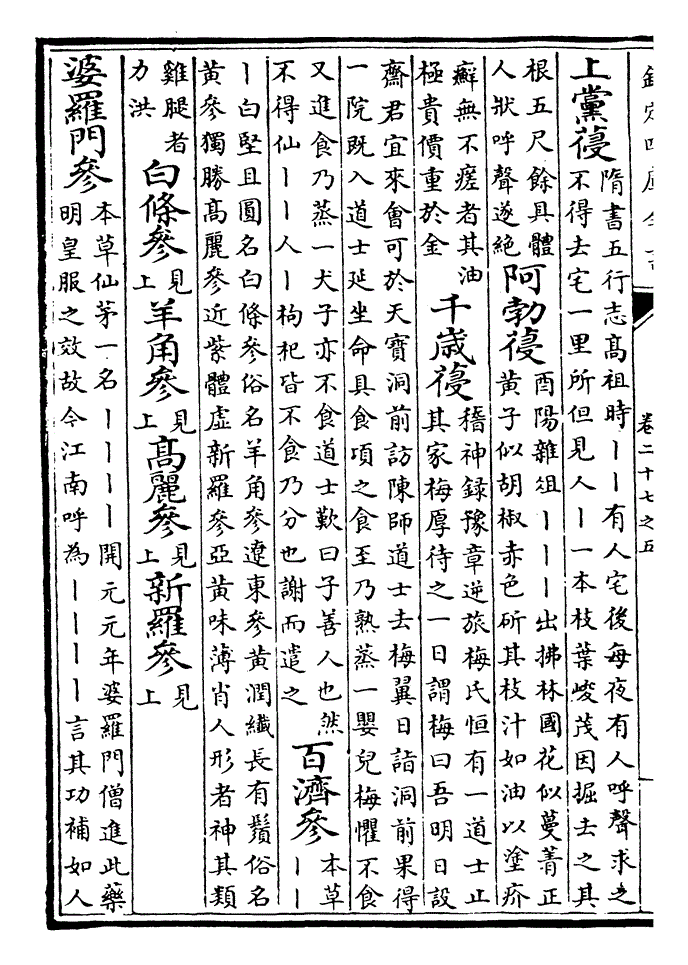 欽定四庫全書
卷二十七之五
上黨葠
隋書五行志髙祖時丨丨有人宅後每夜有人呼聲求之
不得去宅一里所但見人丨一本枝葉峻茂因掘去之其
根五尺餘具體
人狀呼聲遂絶
阿勃葠
酉陽雜俎丨丨丨出拂林國花似蔓菁正
黄子似胡椒赤色斫其枝汁如油以塗疥
癬無不瘥者其油
極貴價重於金
千歳葠
稽神録豫章逆旅梅氏恒有一道士止
其家梅厚待之一日謂梅曰吾明日設
齋君宜來會可於天寶洞前訪陳師道士去梅翼日詣洞前果得
一院既入道士延坐命具食項之食至乃熟蒸一嬰兒梅懼不食
又進食乃蒸一犬子亦不食道士歎曰子善人也然
不得仙丨丨人丨枸杞皆不食乃分也謝而遣之
百濟參
本草
丨丨
丨白堅且圓名白條參俗名羊角參遼東參黄潤纎長有鬚俗名
黄參獨勝髙麗參近紫體虚新羅參亞黄味薄肖人形者神其類
雞腿者
力洪
白條參
見上
羊角參
見上
髙麗參
見上
新羅參
見上
婆羅門參
本草仙茅一名丨丨丨丨開元元年婆羅門僧進此藥
明皇服之效故今江南呼為丨丨丨丨言其功補如人